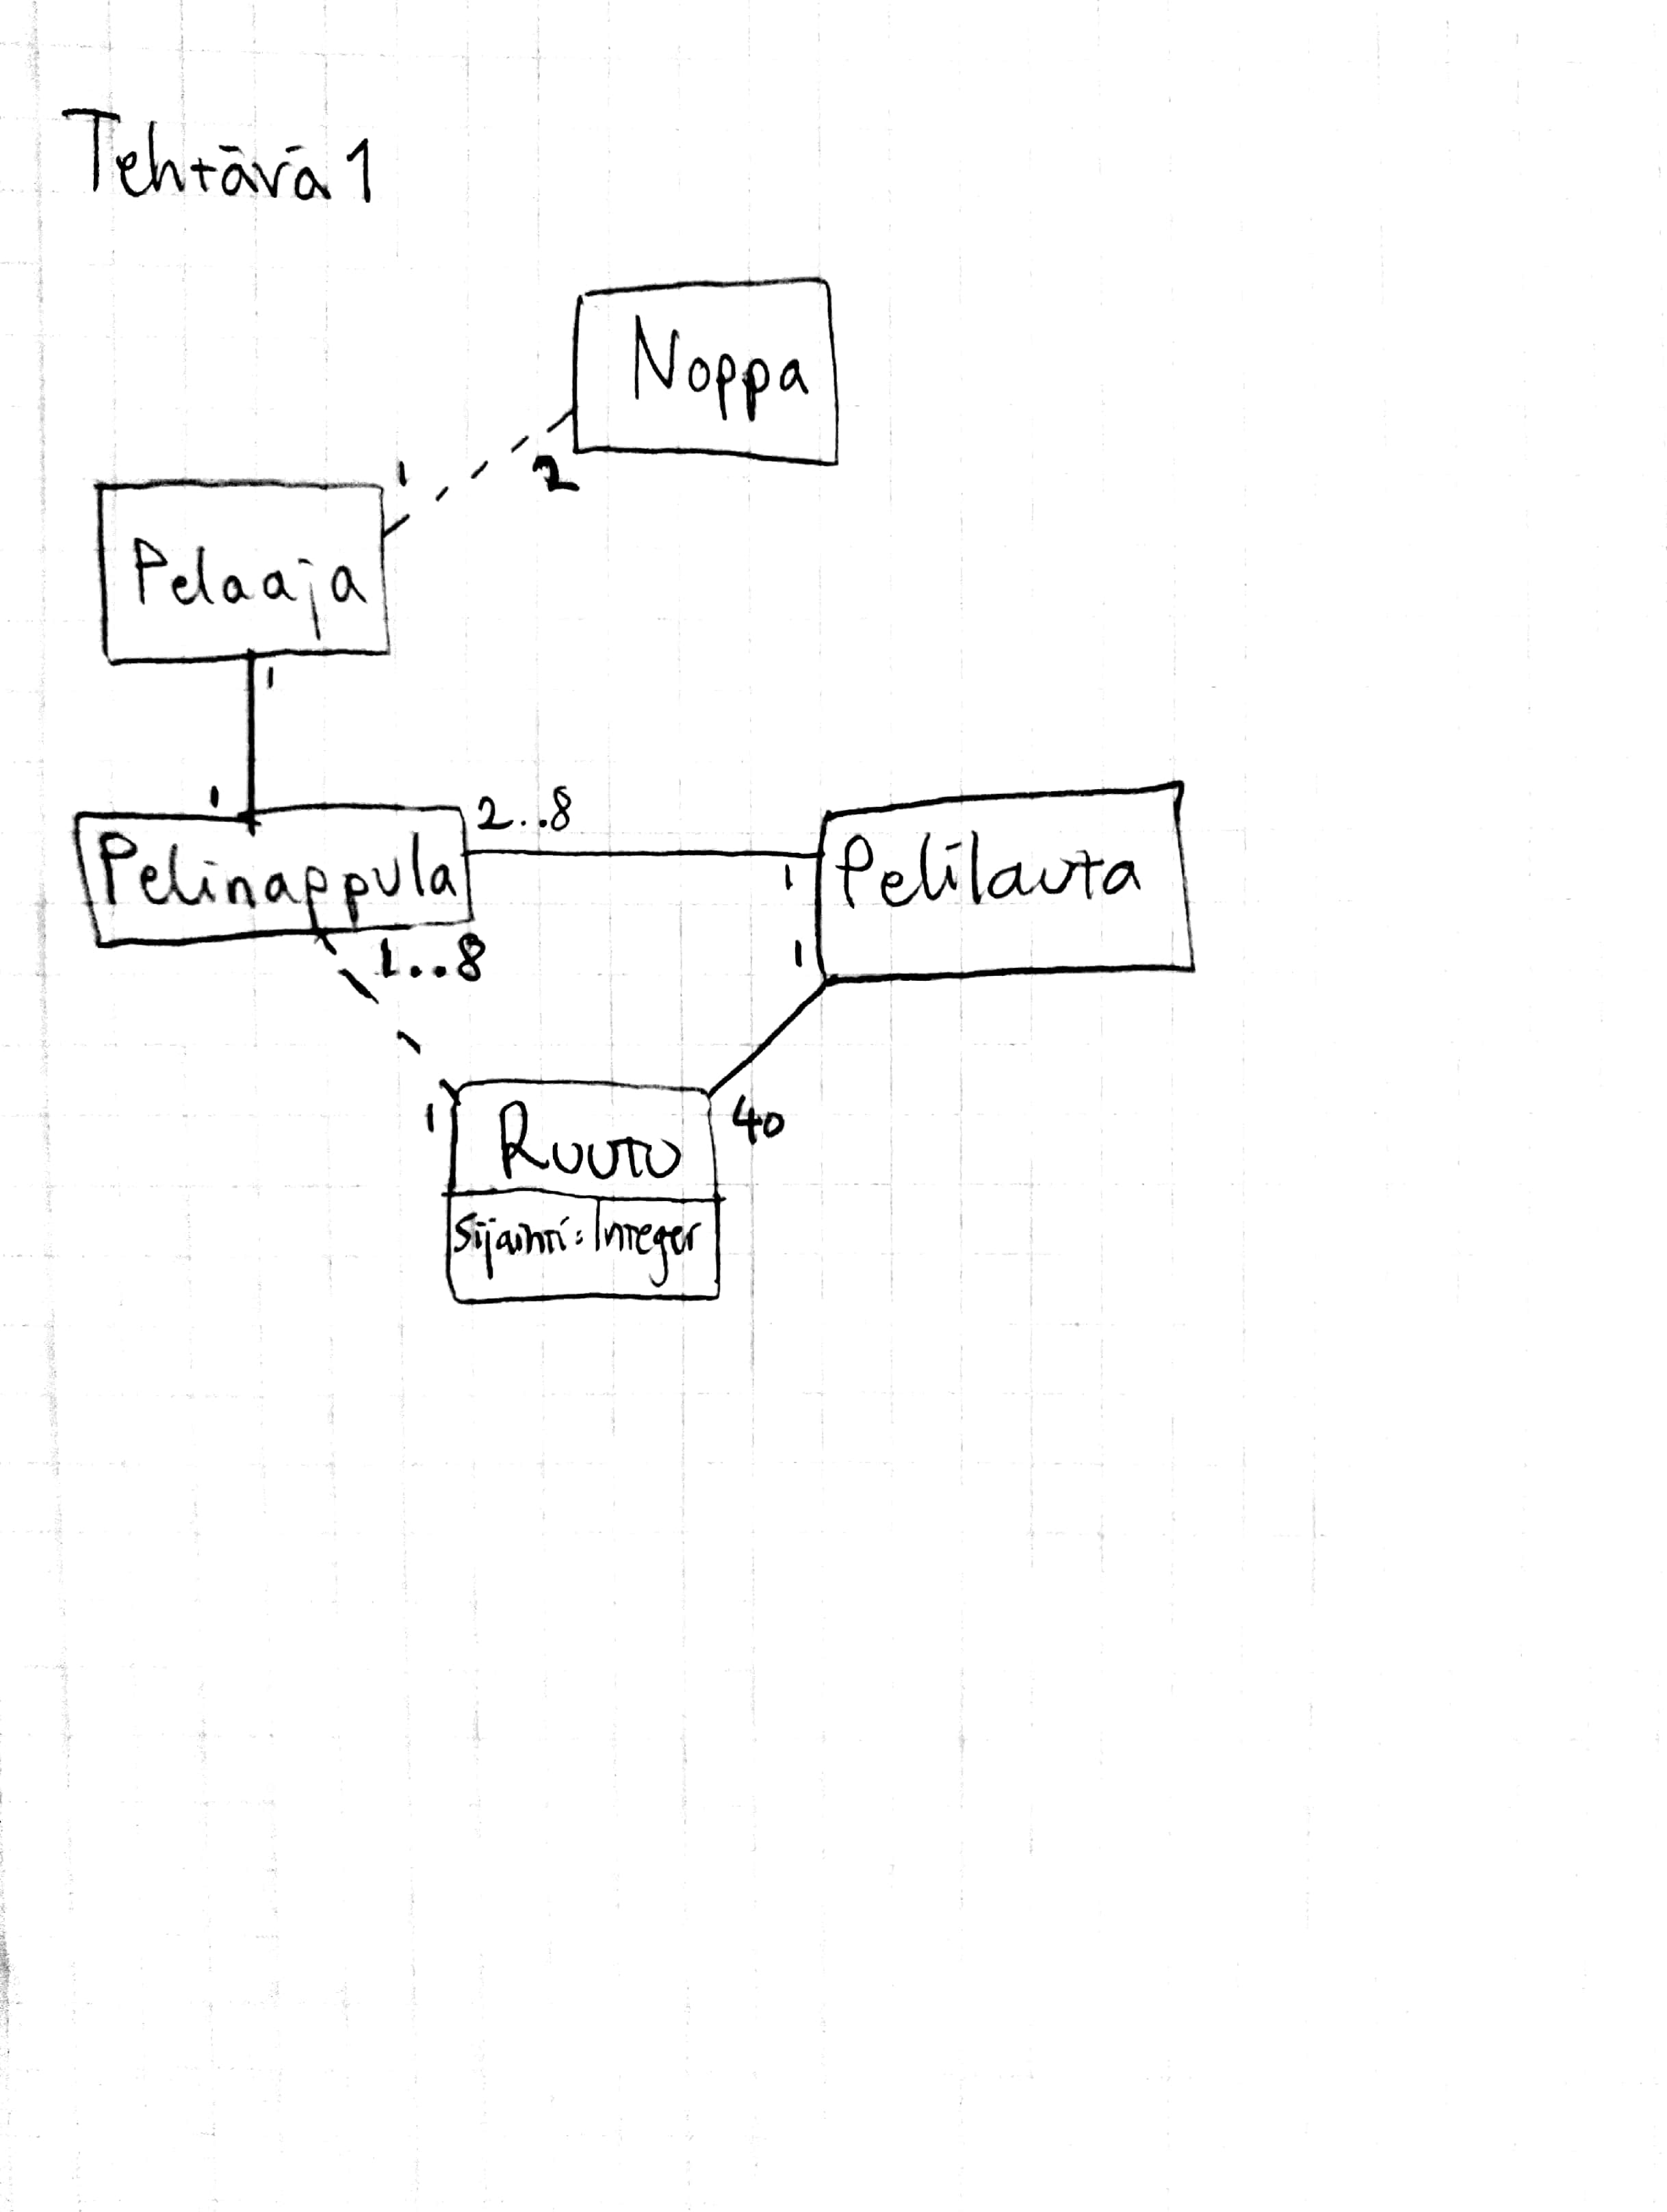 Tehtävä 1
Noppa
1
2
Pelaaja
1
1
2..8
Pelinappula
1
Pelilauta
1..8
1
1
40
Ruutu
Sijainti: Integer